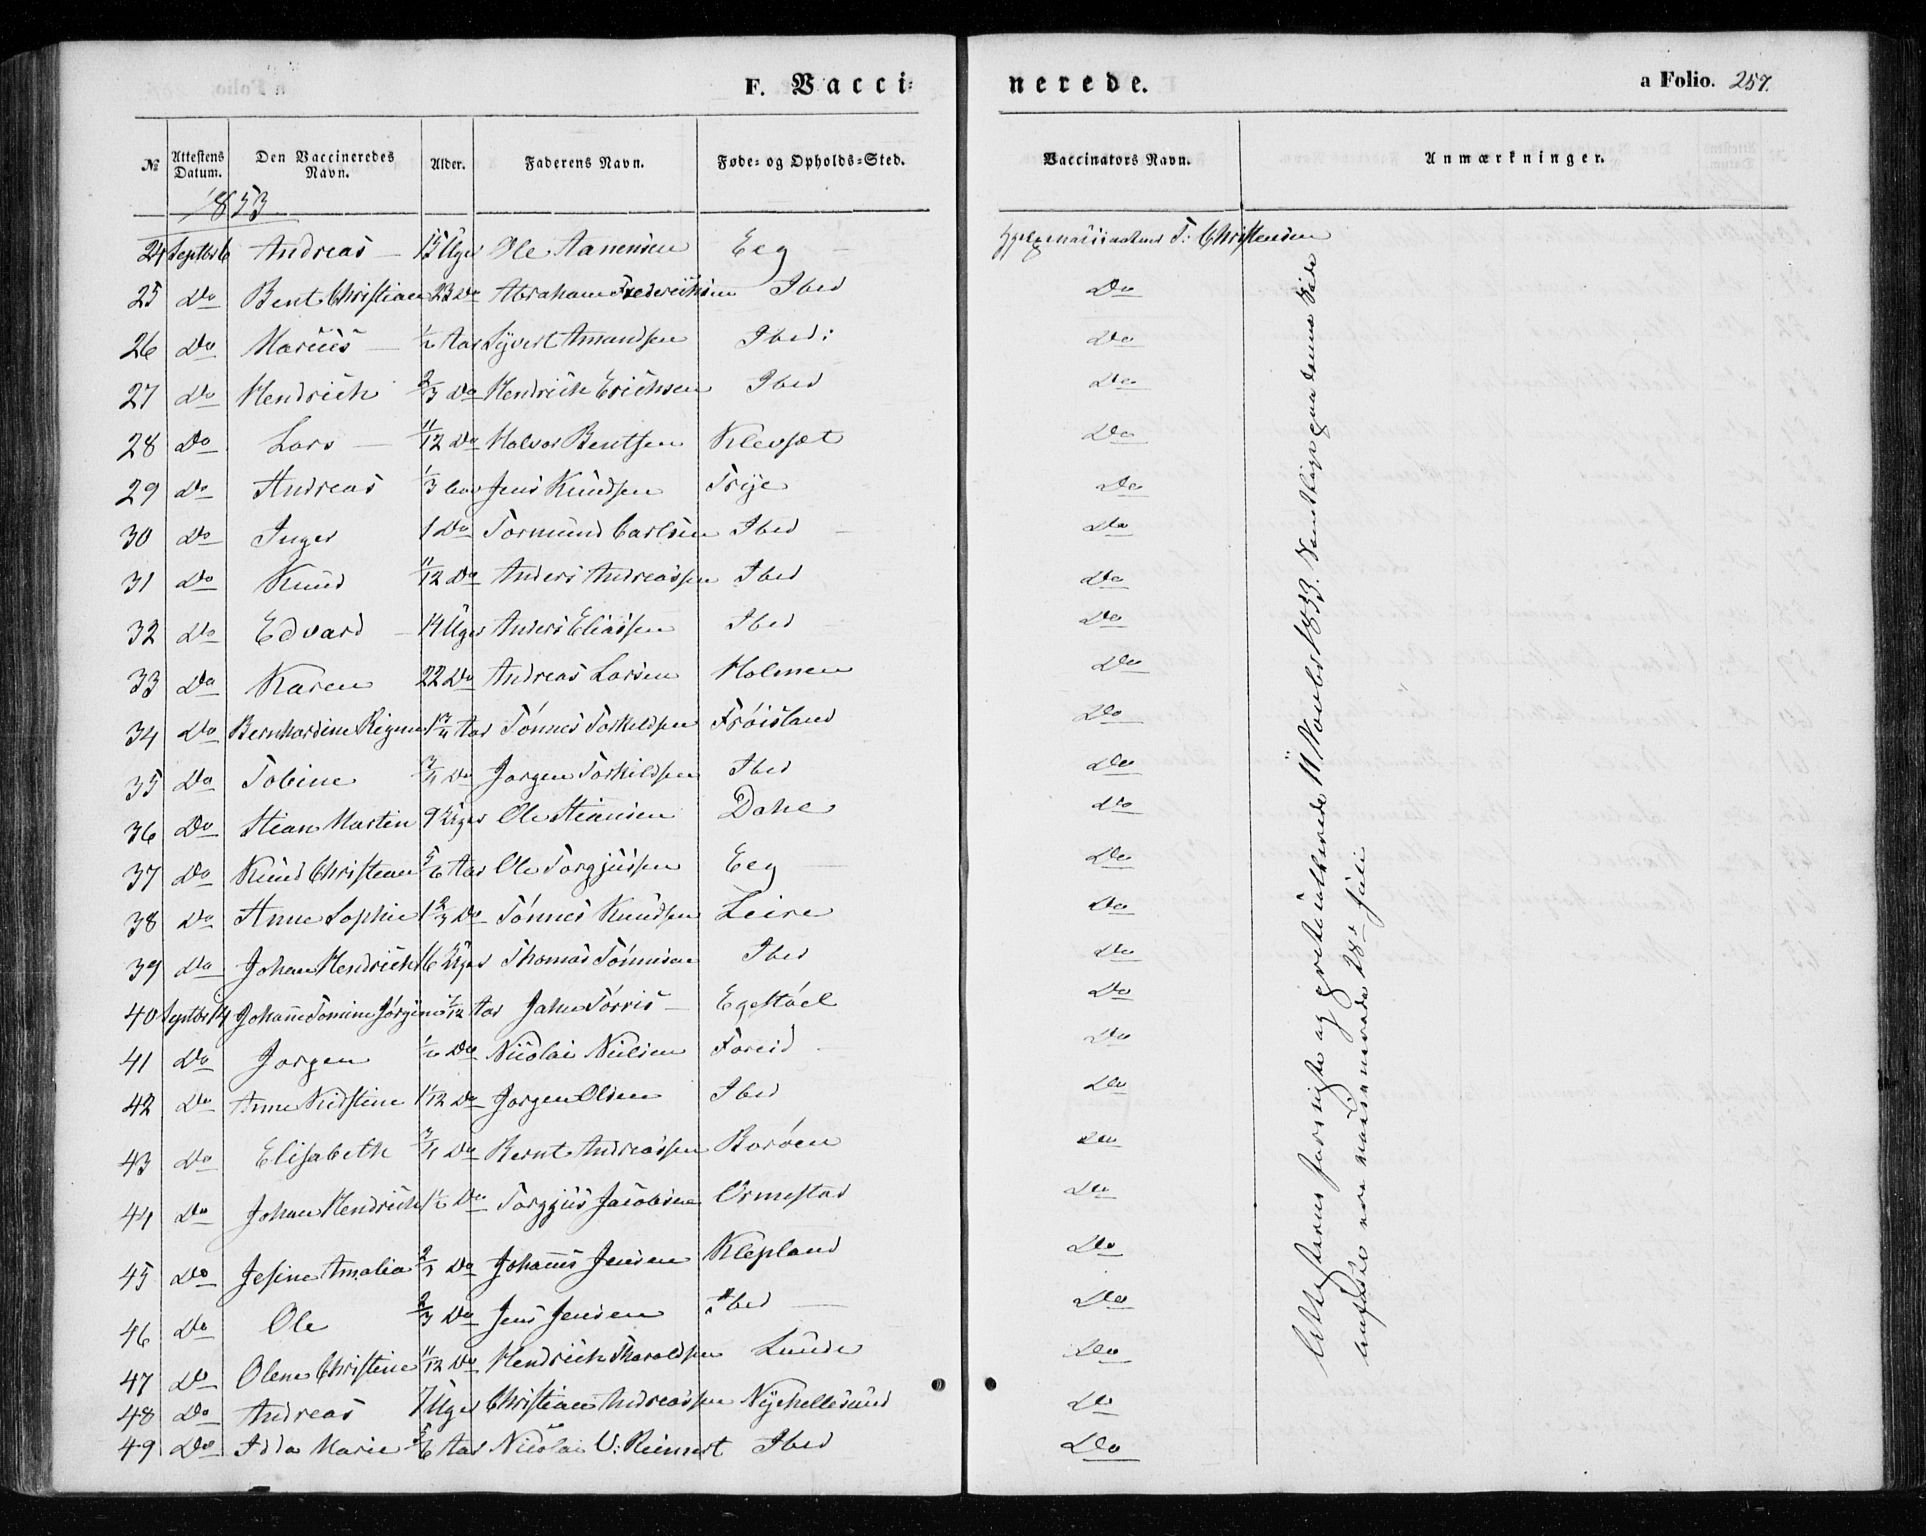 F. Vacci=
nerede.
a Folio. 257.
№ Attestens Datum. Den Vaccineredes Navn. Alder. Faderens Navn. Føde= og Opholds=Sted. Vaccinators Navn. Anmærkninger.
1853
24 Septbr 6 Andreas 15 Uger Ole Aanensen Eeg T: Christensen
25 Do Bent Christian 23 Do Abraham Frederichsen Ibed Do
26 Do Marius 1/2 Aar Syvert Amundsen Ibed: Do
27 Do Hendrich 2/3 Do Hendrich Erichsen Ibed Do
28 Do Lars 11/12 Do Halvor Bentsen Klevset Do
29 Do Andreas 1/3 Jens Knudsen Frye Do
30 Do Inger 1 Do Tormund Carlsen Ibed Do
31 Do Knud 11/12 Do Anders Andreassen Ibed Do
32 Do Edvard 14 Uger Anders Eliassen Ibed Do
33 Do Karen 22 Do Andreas Larsen Holmen Do
34 Do Bernhardine Regine 1 3/4 Aar Tönnes Torkildsen Fröisland Do
35 Do Tobine 3/4 Do Jørgen Torkildsen Ibed Do
36 Do Stian Martin 9 Uger Ole Stiansen Dahl Do
37 Do Knud Christian 5/6 Aar Ole Torgjussen Eeg Do
38 Do Anne Sophie 1 2/3 Do Tönnes Knudsen Leire Do
39 Do Johan Hendrich 16 Uger Thomas Tönnesen Ibed Do
40 Septbr 14 Johanne Tomine Jörgine 7/12 Aar John Torris Egestöel Do
41 Do Jørgen 1/2 Do Nicolai Nielsen Foreid Do
42 Do Anne Kirstine 1/12 Do Jørgen Olsen Ibed Do
43 Do Elisabeth 3/4 Do Bernt Andreassen Boröen Do
44 Do Johan Hendrich 1 1/2 Do Torgjus Jacobsen Ormestad Do
45 Do Jesine Amalia 2/3 Do Johannes Jensen Klepland Do
46 Do Ole 2/3 Do Jens Jensen Ibed Do
47 Do Olene Christine 11/12 Do Hendrich Tharaldsen Lunde Do
48 Do Andreas 7 Uger Christian Andreassen Nyehellesund Do
49 Do Idda Marie 5/6 Aar Nicolai U: Reinert Ibed Do
Attesterne forevigte og 11 Novbr 1853. paa denne Side
ere 28de Juli